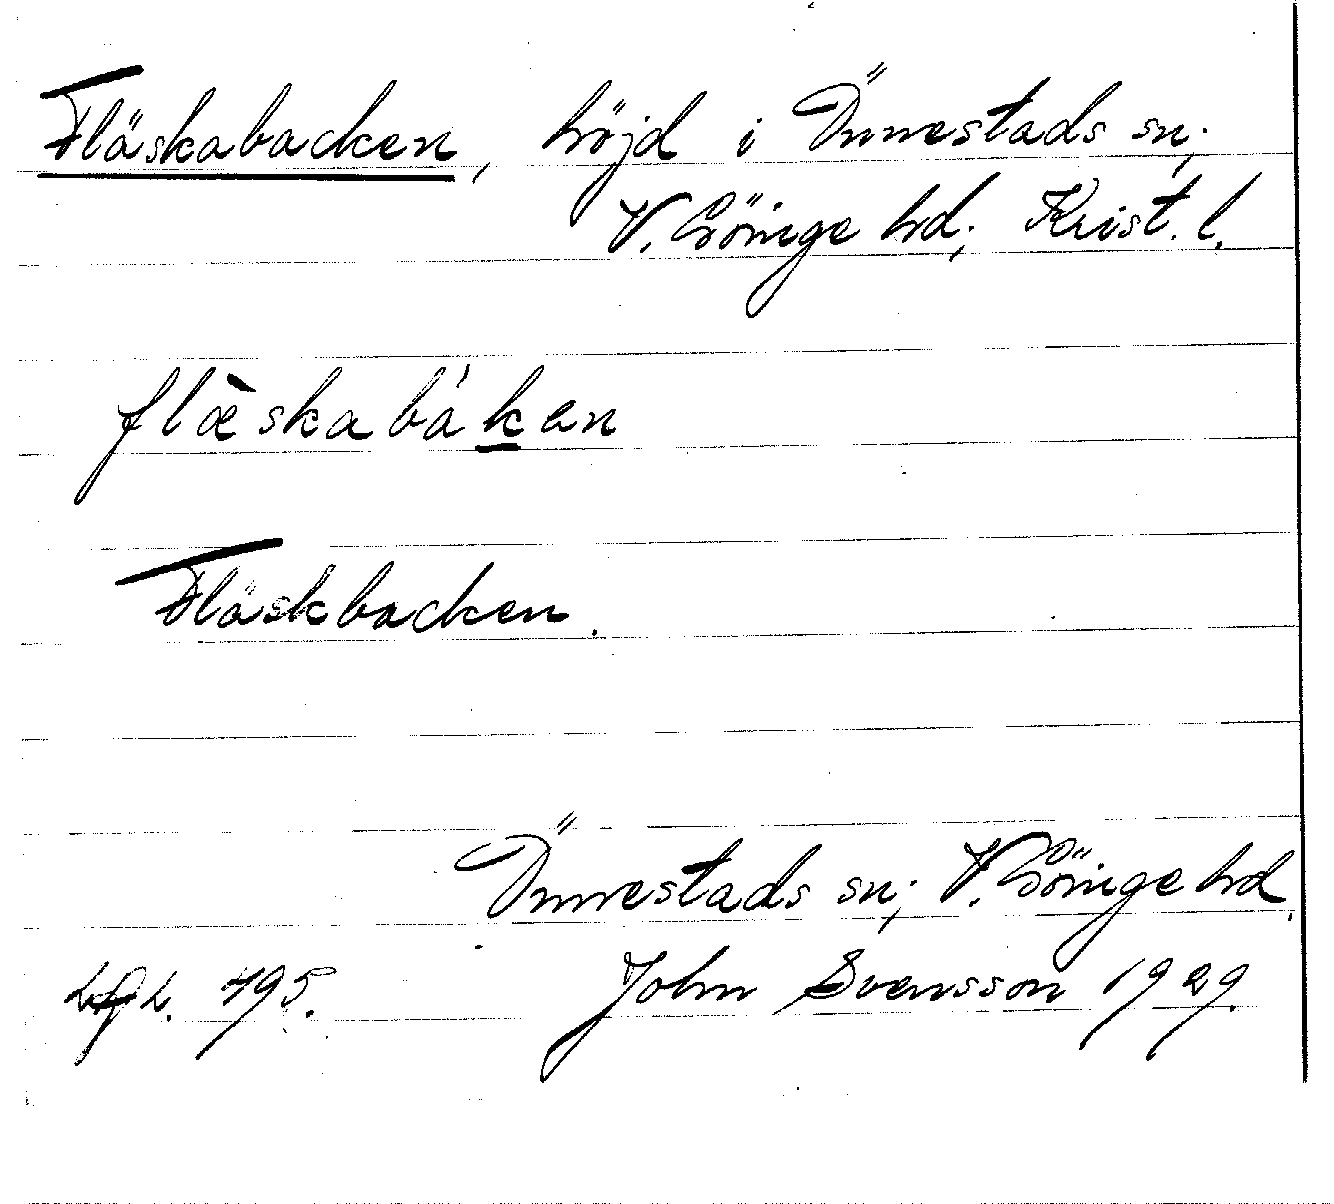 Fläskabacken, höjd i Önnestads sn;
V. Göinge hd; Krist. l.
flæ̀skabákен
Fläskbacken.
Önnestads sn; V. Göinge hd.
495. John Svensson 1929.